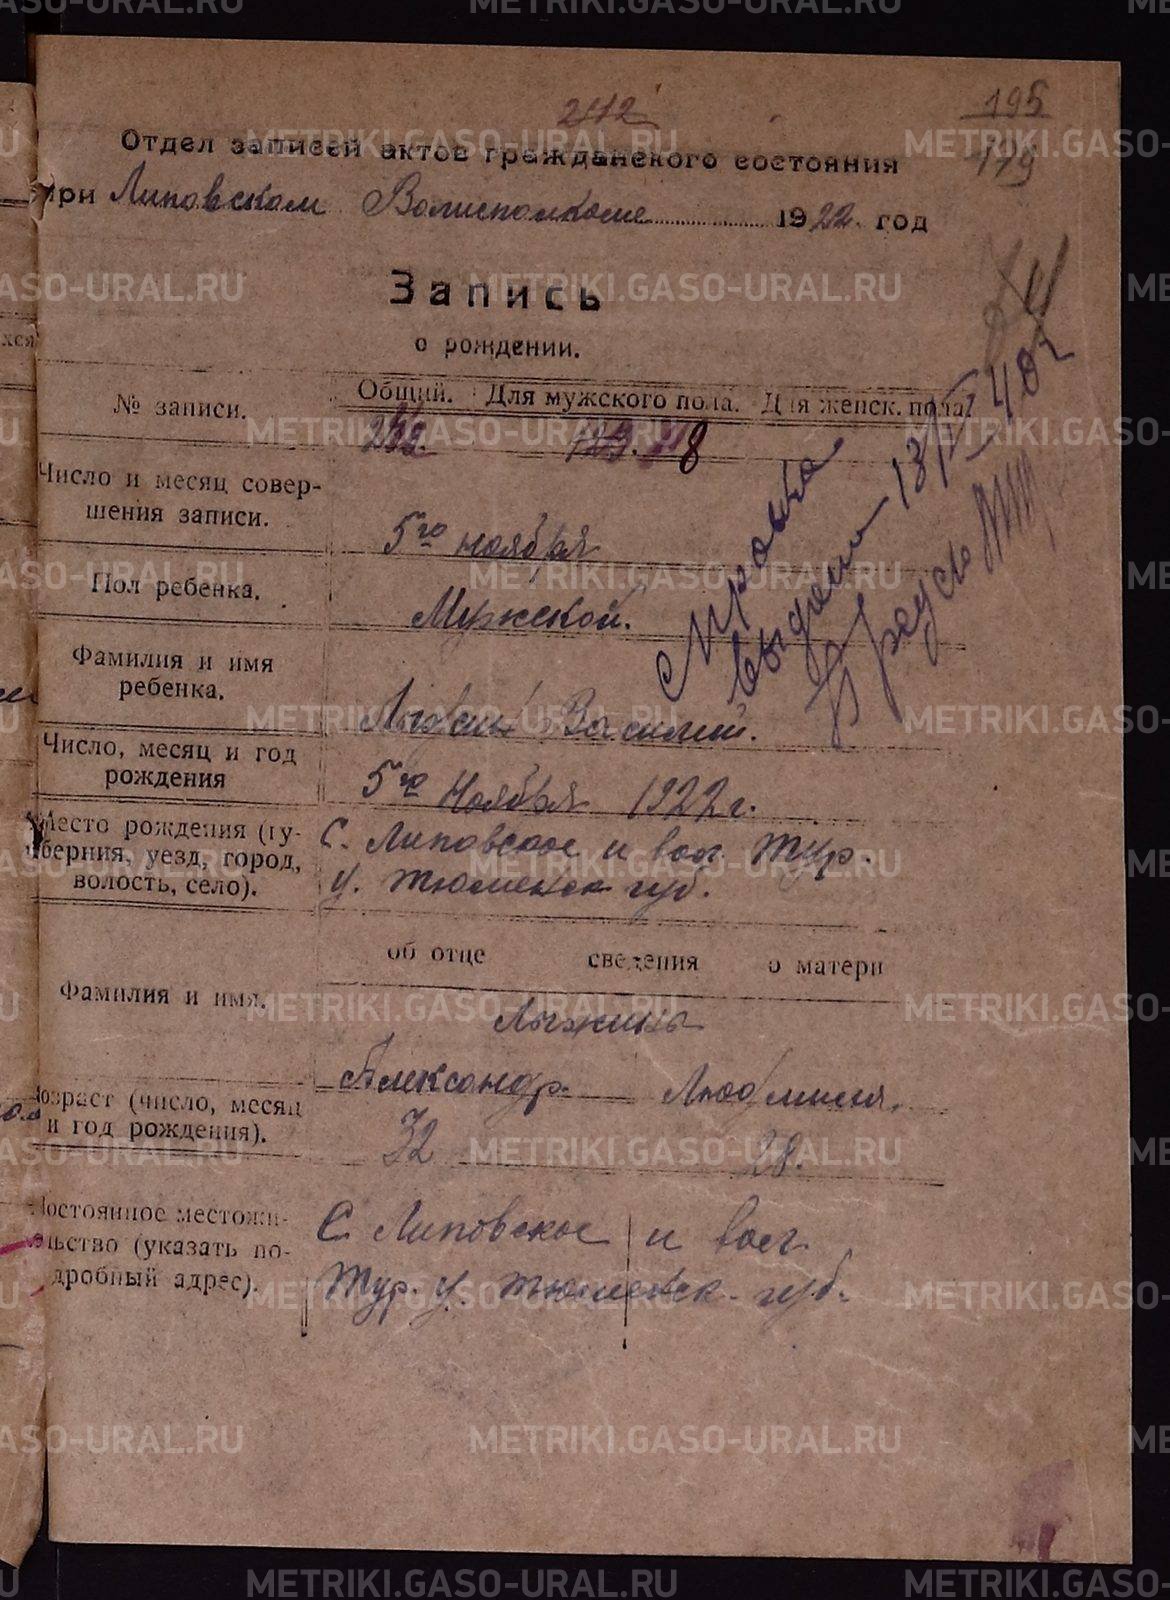 METRIKI.GASO-URAL.RU
242
195
179
Отдел записей актов гражданского состояния
при Липовском Волисполкоме 1922 год
Запись
о рождении.
№ записи.
Общий. Для мужского пола. Для женск. пола.
Число и месяц совер-
шения записи.
5го ноября
Пол ребенка.
Мужской.
Справка
выдана 13/
Фамилия и имя
ребенка.
Лыжин Василий.
Число, месяц и год
рождения
5го Ноября 1922 г.
Место рождения (гу-
берния, уезд, город,
волость, село).
С. Липовское и вол. Тур.
у. Тюменск губ.
об отце сведения о матери
Фамилия и имя.
Лыжины
Александр. Людмила.
Возраст (число, месяц
и год рождения).
32 28.
Постоянное местожи-
тельство (указать по-
дробный адрес).
С. Липовское и вол.
Тур. у. Тюменск. губ.